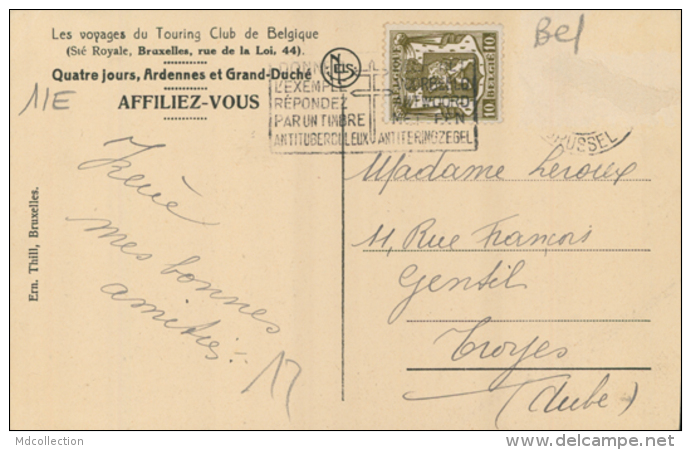 Les voyages du Touring Club de Belgique
(Sté Royale, Bruxelles, rue de la Loi, 44).
Quatre jours, Ardennes et Grand-Duché
AFFILIEZ-VOUS
11E
Bel
NELS
BELGIQUE
10
10
L'EXEMPLE
RÉPONDEZ
PAR UN TIMBRE
ANTITUBERCULEUX
ANTITERINGZEGEL
BRUSSEL
Madame Leroux
11, Rue François
Gentil
Troyes
(Aube)
mes bonnes
amitiés
Ern. Thill, Bruxelles.
Mdcollection
delcampe.net